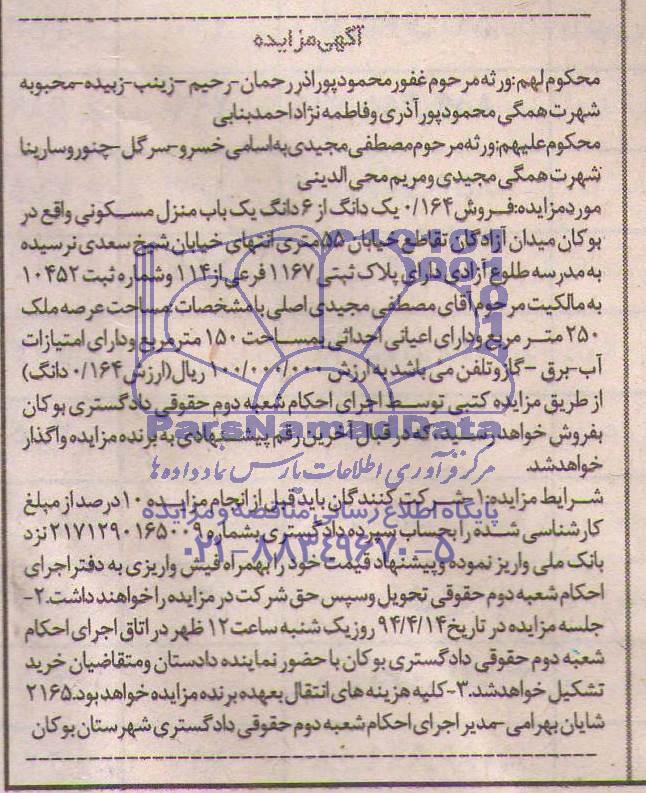 آگهی مزایده
محکوم لهم: ورثه مرحوم غفور محمودپور اذر رحمان-رحیم -زینب-زبیده-محبوبه
شهرت همگی محمودپور آذری و فاطمه نژاد احمد بنابی
محکوم علیهم: ورثه مرحوم مصطفی مجیدی به اسامی خسرو-سرگل-چنور و سارینا
شهرت همگی مجیدی و مریم محی الدینی
مورد مزایده: فروش ۰/۱۶۴ یک دانگ از ۶ دانگ یک باب منزل مسکونی واقع در
بوکان میدان آزادگان تقاطع خیابان ۵۵ متری انتهای خیابان شیخ سعدی نرسیده
به مدرسه طلوع آزادی دارای پلاک ثبتی ۱۱۶۷ فرعی از ۱۱۴ و شماره ثبت ۱۰۴۵۲
به مالکیت مرحوم آقای مصطفی مجیدی اصلی با مشخصات: مساحت عرصه ملک
۲۵۰ متر مربع و دارای اعیانی احداثی بمساحت ۱۵۰ مترمربع و دارای امتیازات
آب-برق -گاز و تلفن می باشد به ارزش ۱۰۰/۰۰۰/۰۰۰ ریال (ارزش ۰/۱۶۴ دانگ)
از طریق مزایده کتبی توسط اجرای احکام شعبه دوم حقوقی دادگستری بوکان
ParsNamadData
بفروش خواهد رسید، که در قبال آخرین رقم پیشنهادی به برنده مزایده واگذار
خواهد شد.
مرکز فرآوری اطلاعات پارس نماد داده ها
شرایط مزایده: ۱-شرکت کنندگان باید قبل از انجام مزایده ۱۰ درصد از مبلغ
پایگاه اطلاع رسانی مناقصه و مزایده
کارشناسی شده را بحساب سپرده دادگستری بشماره ۲۱۷۱۲۹۰۱۶۵۰۰۹ نزد
۰۲۱-۸۸۳۴۹۶۷۰-۵
بانک ملی واریز نموده و پیشنهاد قیمت خود را بهمراه فیش واریزی به دفتر اجرای
احکام شعبه دوم حقوقی تحویل و سپس حق شرکت در مزایده را خواهند داشت. ۲-
جلسه مزایده در تاریخ ۹۴/۴/۱۴ روز یک شنبه ساعت ۱۲ ظهر در اتاق اجرای احکام
شعبه دوم حقوقی دادگستری بوکان با حضور نماینده دادستان و متقاضیان خرید
تشکیل خواهد شد. ۳-کلیه هزینه های انتقال بعهده برنده مزایده خواهد بود. ۲۱۶۵
شایان بهرامی -مدیر اجرای احکام شعبه دوم حقوقی دادگستری شهرستان بوکان